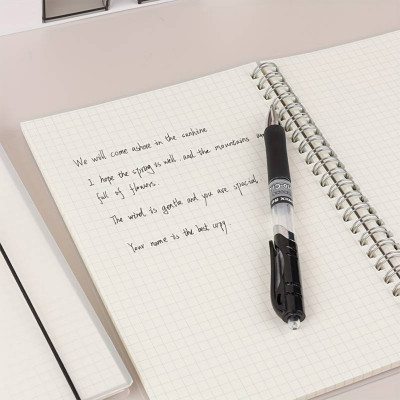 We will come ashore in the sunshine
I hope the spring is well, and the mountains are
full of flowers.
The wind is gentle and you are special
Your name is the best copy.